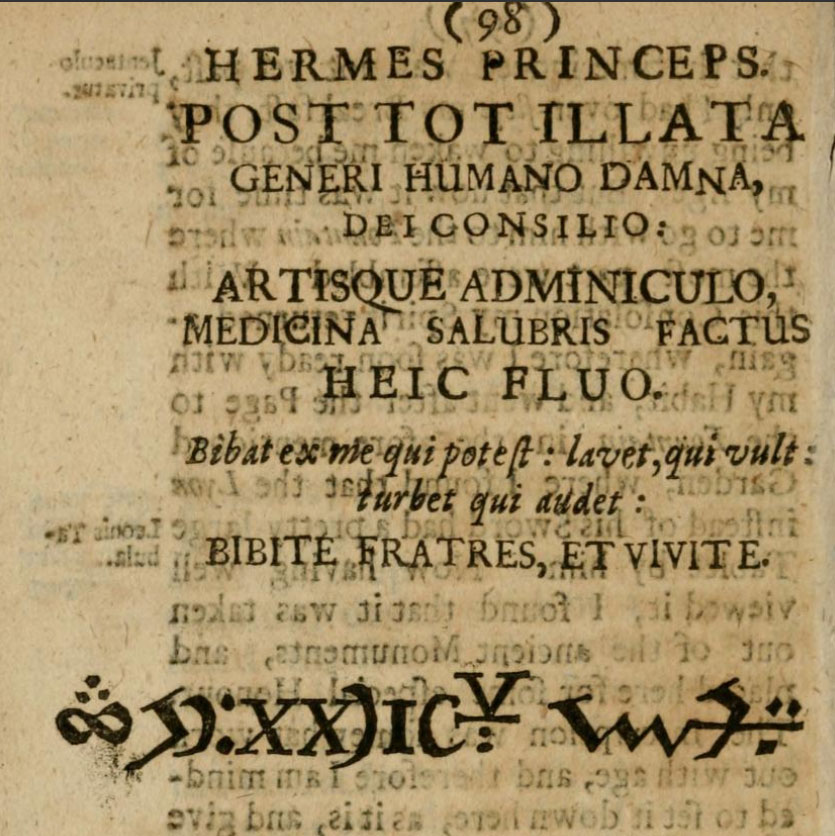 (98)
HERMES PRINCEPS.
POST TOT ILLATA
GENERI HUMANO DAMNA,
DEI CONSILIO:
ARTISQUE ADMINICULO,
MEDICINA SALUBRIS FACTUS
HEIC FLUO.
Bibat ex me qui poteſt : lavet, qui vult :
turbet qui audet :
BIBITE FRATRES, ET VIVITE.